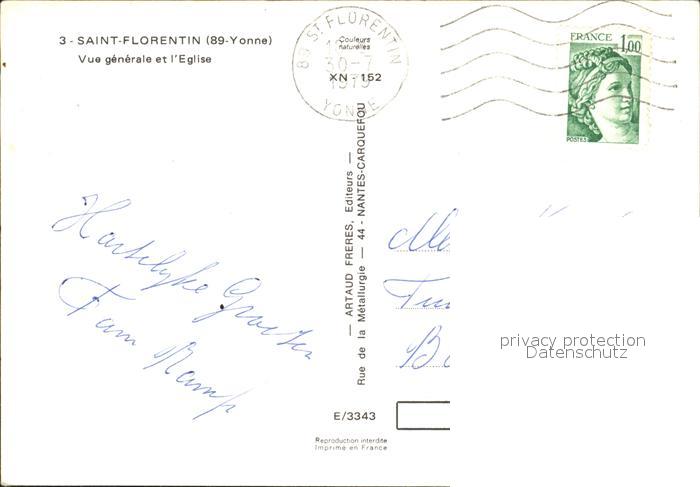 3 - SAINT-FLORENTIN (89-Yonne)
Vue générale et l'Eglise
Couleurs
naturelles
XN - 152
89 ST FLORENTIN
30-7
1979
YONNE
FRANCE
1,00
POSTES
Hartelyke Groeten
Fam Kamp
— ARTAUD FRERES, Editeurs —
Rue de la Métallurgie — 44 - NANTES-CARQUEFOU
privacy protection
Datenschutz
E/3343
Reproduction interdite
Imprimé en France